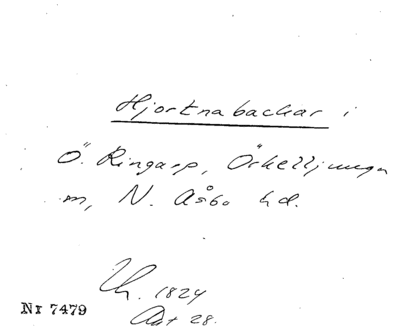 Hjortnabackar i
Ö. Ringarp, Örkelljunga
m, N. Åsbo hd.
Uh. 1824
Akt 28.
Nr 7479